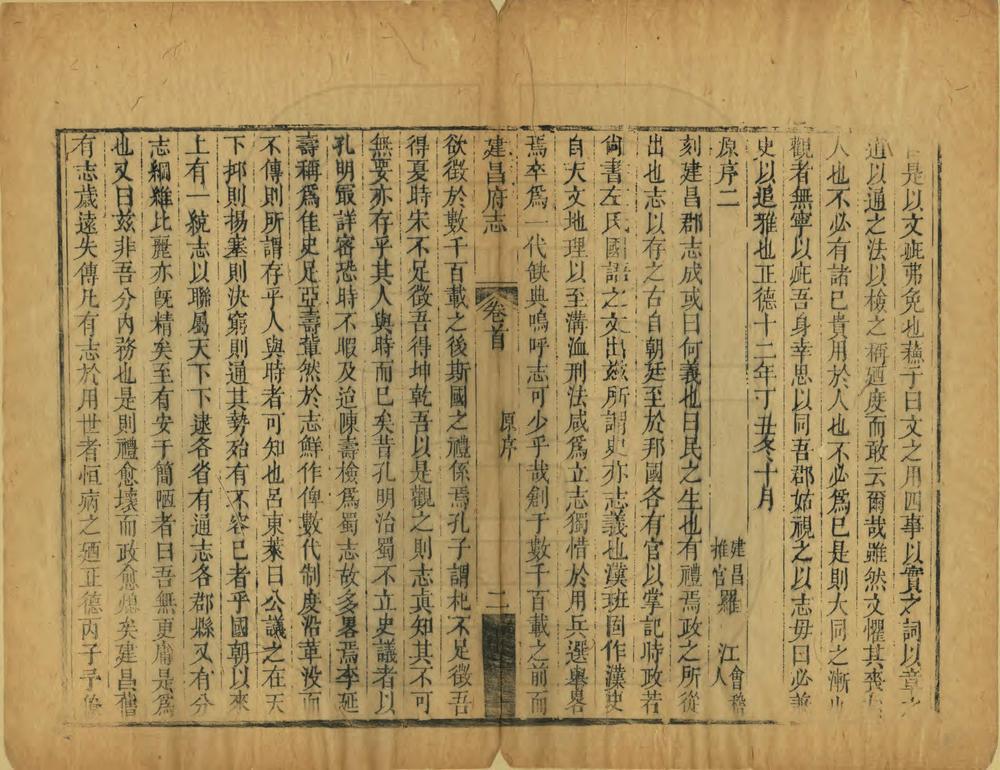 是以文疵弗免也蘇子曰文之用四事以實之詞以章之
道以通之法以檢之稱廼度而敢云爾哉雖然文懼其喪
人也不必有諸己貴用於人也不必爲已是則大同之漸也
觀者無寧以疵吾身幸思以同吾郡姑視之以志毋曰必善
史以追雅也正德十二年丁丑冬十月
原序二
建昌推官羅江會稽人
刻建昌郡志成或曰何義也曰民之生也有禮焉政之所從
出也志以存之古自朝廷至於邦國各有官以掌記時政若
尙書左氏國語之文出兹所謂史亦志義也漢班固作漢史
自天文地理以至溝洫刑法咸爲立志獨惜於用兵選舉畧
焉卒爲一代缺典嗚呼志可少乎哉創于數千百載之前而
建昌府志
卷首
原序
二
欲徵於數千百載之後斯國之禮係焉孔子謂杞不足徵吾
得夏時宋不足徵吾得坤乾吾以是觀之則志眞知其不可
無要亦存乎其人與時而已矣昔孔明治蜀不立史議者以
孔明最詳密恐時不暇及迨陳壽檢爲蜀志故多畧焉李延
壽稱爲佳史足亞壽葷然於志鮮作俾數代制度沿革没而
不傳則所謂存乎人與時者可知也呂東萊曰公議之在天
下抑則揚塞則決窮則通其勢殆有不容已者乎國朝以來
上有一統志以聯屬天下下逮各省有通志各郡縣又有分
志綱維比麗亦旣精矣至有安于簡陋者曰吾無更庸是爲
也又曰兹非吾分內務也是則禮愈壞而政愈熄矣建昌舊
有志歲遠失傳凡有志於用世者恒病之廼正德丙子予